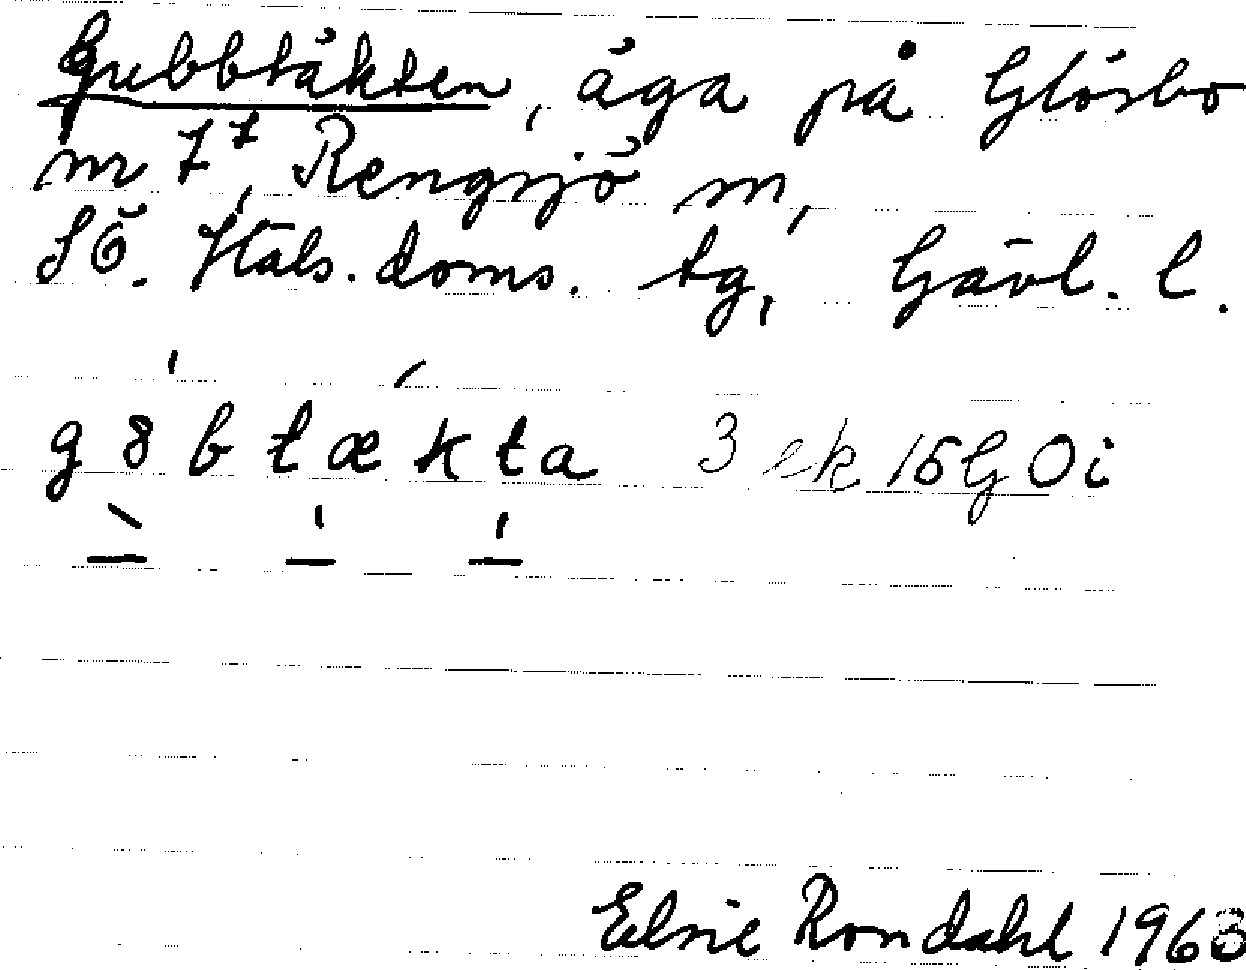 Gubbtäkten, äga på Glösbo
nr 7⁷, Rengsjö sn,
SÖ. Häls. doms. tg, Gävl. l.
g8btækta 3 ek 15G Oi
Elsie Rondahl 1963